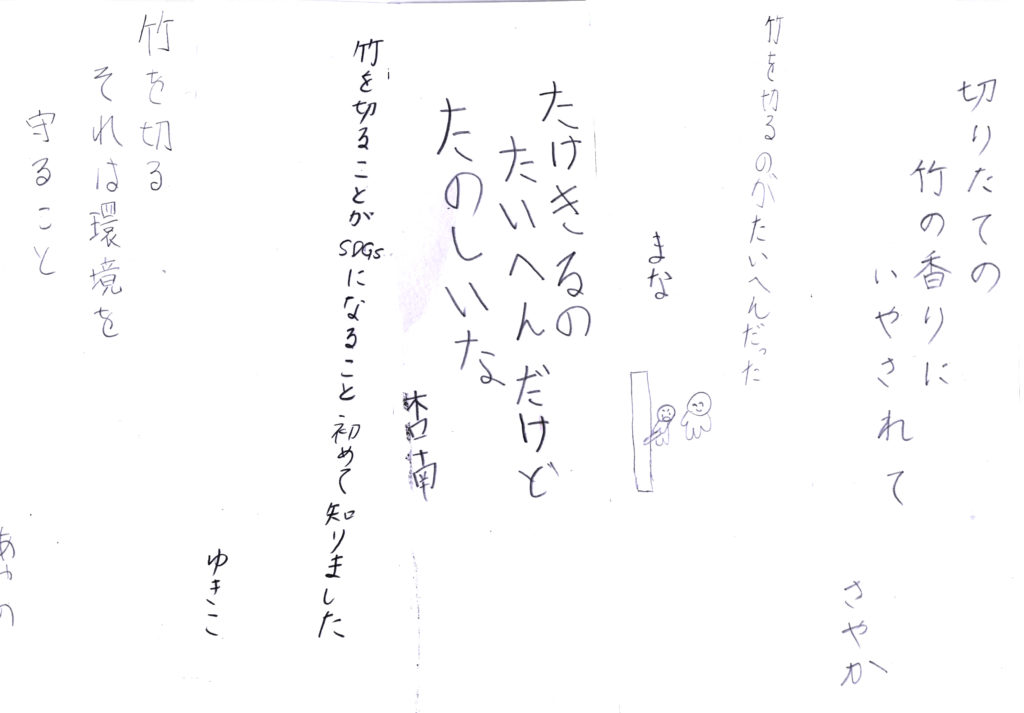 切りたての
竹の香りに
いやされて
さやか
竹を切るのがたいへんだった
まな
たけきるの
たいへんだけど
たのしいな
竹を切ることがSDGsになること初めて知りました
ゆきこ
竹を切る
それは環境を
守ること
あやの